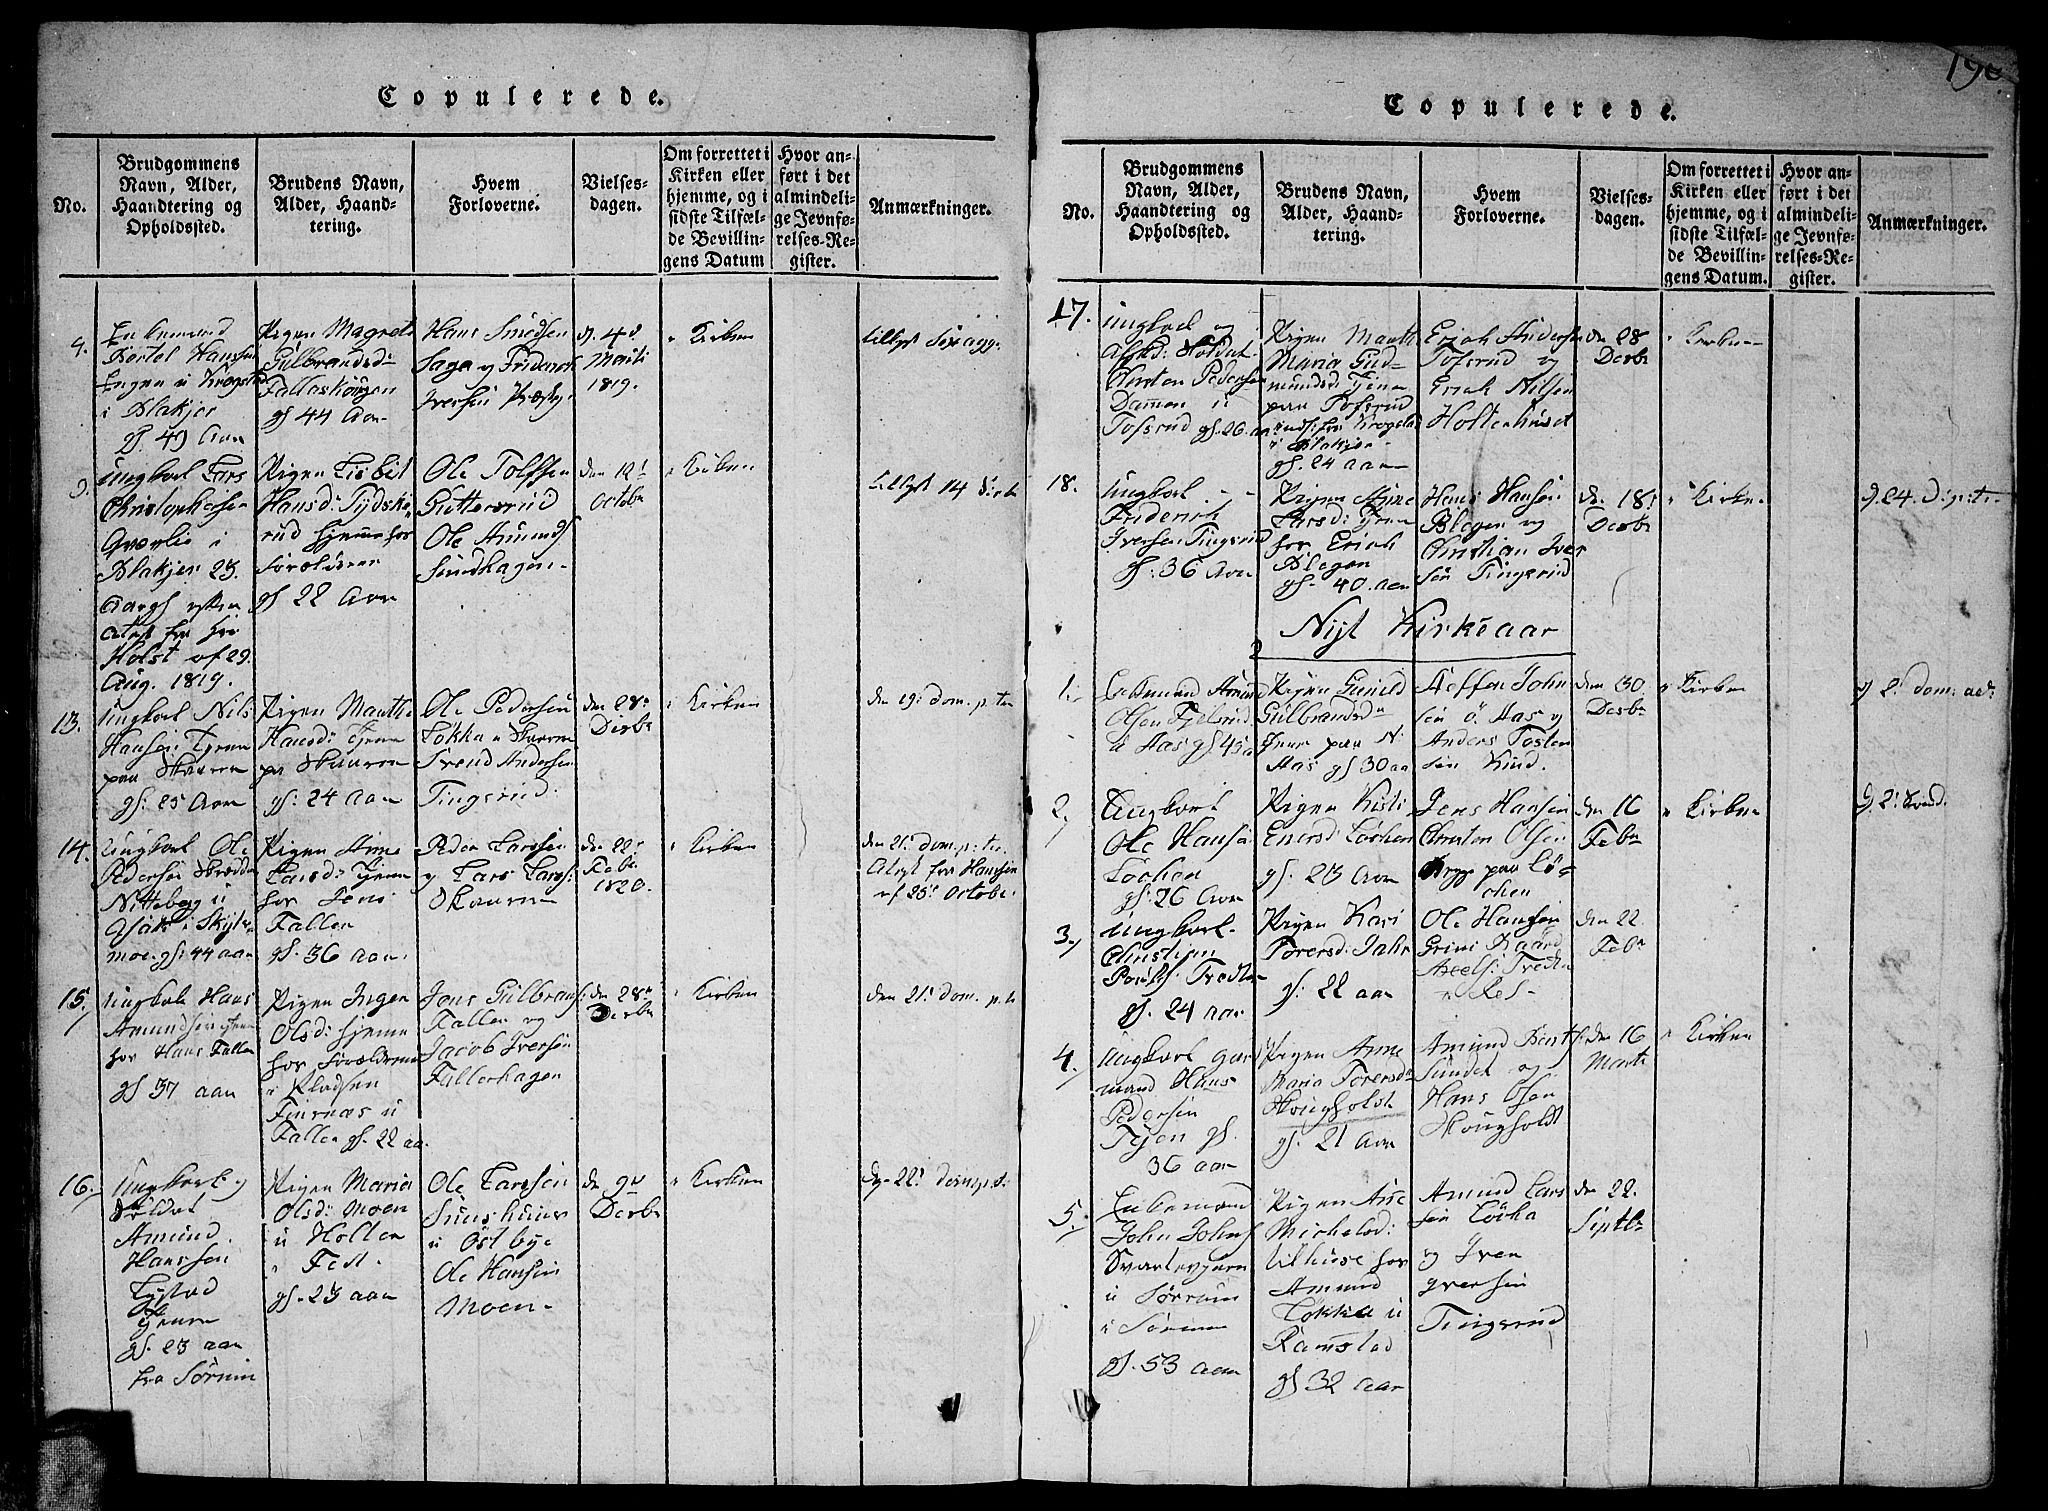 190
Copulerede.
No.
Brudgommens
Navn, Alder,
Haandtering og
Opholdssted.
Brudens Navn,
Alder, Haand-
tering.
Hvem
Forloverne.
Vielses-
dagen.
Om forrettet i
Kirken eller
hjemme, og i
sidste Tilfæl-
de Bevillin-
gens Datum
Hvor an-
ført i det
almindeli-
ge Jevnfø-
relses-Re-
gister.
Anmærkninger.
Enkemand
Bertel Hanssen
i Blakjer
gl. 49 Aar
Pigen Magrete
Gulbrandsd:
gl 44 Aar
Hans Smedsen
Saga og Friderich
Iversen
d. 4d
Marti
1819.
Kirken
9.
Ungkarl Lars
Christophersen
i
Blakjer 25.
Holst af 29.
Aug. 1819.
Pigen Lisbet
Hansd: Tydski
rud hjemme hos
Forældrene
gl 22 Aar
Ole Tolfsen
Guttersrud
Ole Amunds
Sundhagen.
den 12t
Octobr
Kirken
13.
Ungkarl Nils
Hansen Tjener
paa Skaaren
gl: 25 Aar
Pigen Marthe
Hansd: Tjener
pa Skaaren
gl: 24 Aar
Ole Pedersen
Løkka u Skaaren
Trend Andersen
Tingsrud.
den 28n
Decbr
Kirken
den 19: dom. p. tr
14.
Ungkarl Ole
Pedersen
Nitteberg u
moe. gl: 44 aar
Pigen Anne
Larsd: Tjener
hos Jens
Fallen
gl. 36 aar.
Peder Larssen
og Lars Lars:
Skaaren
den 22:
Febr
1820.
Kirken
den 21: dom. p. tr.
Attest fra Hanssen
af 25: Octobr.
15.
Ungkarl Hans
Amundsen tjener
hos Hans Fallen
gl 37 aar
Pigen Inger
Olsd: hjemme
hos Forældrene
i Pladsen
Fallen gl. 22 aa.
Jens Gulbrans:
Fallen og
Jacob Iversen
Fallerhagen
den 28n
Decbr
Kirken
den 21: dom. p. tr
16.
Ungkarl og
Soldat
Amund
Hanssen
gl. 23 aar
fra Sørum
Pigen Maria
Olsd: Moen
u Hollen
i Fedt.
gl. 23 aar
Ole Larssen
u Østbye
Ole Hansen
Moen.
den 9d
Decbr
Kirken
Copulerede.
No.
Brudgommens
Navn, Alder,
Haandtering og
Opholdssted.
Brudens Navn,
Alder, Haand-
tering.
Hvem
Forloverne.
Vielses-
dagen.
Om forrettet i
Kirken eller
hjemme, og i
sidste Tilfæl-
de Bevillin-
gens Datum.
Hvor an-
ført i det
almindeli-
ge Jevnfø-
relses-Re-
gister.
Anmærkninger.
17.
Ungkarl og
Afskd: Soldat
Christen Pedersen
Dammen u
Tofsrud gl. 26 aa
Pigen Marth
Maria Gud
mundsd: Tjener
paa Tofsrud
i Blakjer
gl. 24 aar
Erich Andersen
Tofsrud og
Erick Nilsen
Holtenhuset
den 28
Decbr
Kirken
18.
Ungkarl
Friderich
Iversen Tingsrud
gl: 36 Aar
Pigen Anne
Larsd: Tjener
hos Erich
Blegen
gl. 40. aar
Hans Hansen
Blegen og
Christian Iver
sen Tingsrud
den 18:
Decbr
Kirken
d. 24. D. p. tr.
Nyt Kirkeaar
1.
Enkemand Amund
Olsen Fjelsrud
u Aas gl 45 a
Pigen Gunild
Gulbrandsd
tjener paa N.
Aas gl 30 aa
Steffen John
sen Ø. Aas og
Anders Tosten
sen Rud.
den 30
Decbr
Kirken
d. 2: dom. adv.
2.
Ungkarl
Ole Hansen
Løchen
gl. 26 Aar
Pigen Kisti
Enersd: Løchen
gl. 23 Aar
Jens Hansen
Christen Olsen
begge paa Lø-
chen
den 16
Febr
Kirken
3.
Ungkarl
Christian
Poulss. Tredten
gl. 24 aar
Pigen Kari
Torersd: Jahr
gl: 22 aar
Ole Hansen
Grini
Axels: Tredten
den 22
Febr
4.
Ungkarl Gar
mand Hans
Pedersen
Tejen gl.
36 aar
Pigen Anne
Maria Torersd
Hougholdt
gl: 21 Aar
Amund
Sundet og
Hans Olsen
Hougholdt
den 16
Marti
Kirken
5.
Enkemand
John Johns
u Sørum
i Sørum
gl. 53 aar
Pigen Anne
Michelsd:
hos
Amund
Løkka u
Ramstad
gl 32 aar
Amund Lars
sen Løkka
og Iver
Iversen
Tingsrud
den 22.
Septbr